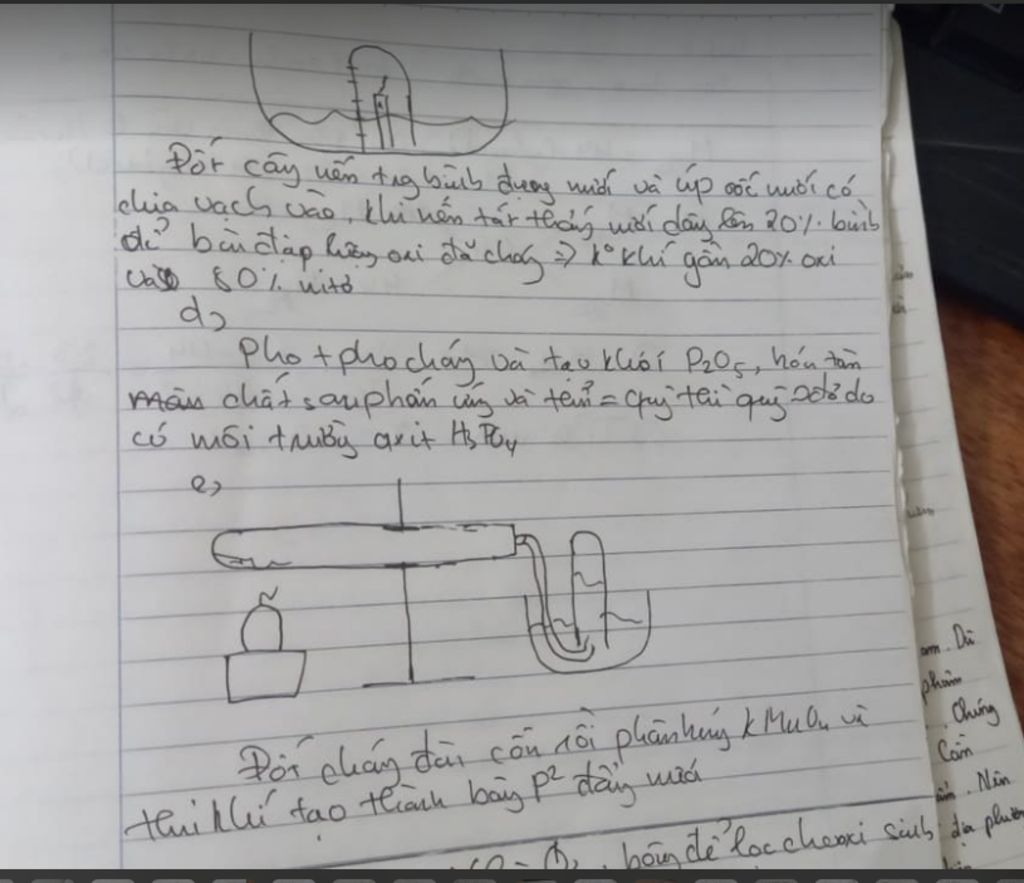 Đốt cây nến trg bình đựng nước và úp cốc nước có
chia vạch vào, khi nến tắt thấy nước dâng lên 20% bình
để bù đắp lượng oxi đã cháy => k° khí gần 20% oxi
và 80% nitơ
d,
Pho + pho cháy và tạo khói P₂O₅, hòa tan
chất sau phản ứng và tử = quỳ thì quỳ → đỏ do
có môi trường axit H₃PO₄
e,
Đốt cháy đèn cồn rồi phân hủy KMnO₄ và
thu khí tạo thành bằng P² đẩy nước
bông để lọc cho oxi sinh
am. Dù
phẩm
Chúng
Cần
Nên
địa phươ